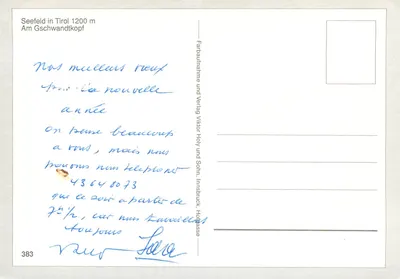 Seefeld in Tirol 1200 m
Am Gschwandtkopf
Nos meilleurs vœux
pour la nouvelle
année
on pense beaucoup
a vous, mais nous
pouvons nous telephoner
43648073
que le soir a partir de
7h 1/2, car nous travaillons
toujours
383
Farbaufnahme und Verlag Viktor Holy und Sohn, Innsbruck,